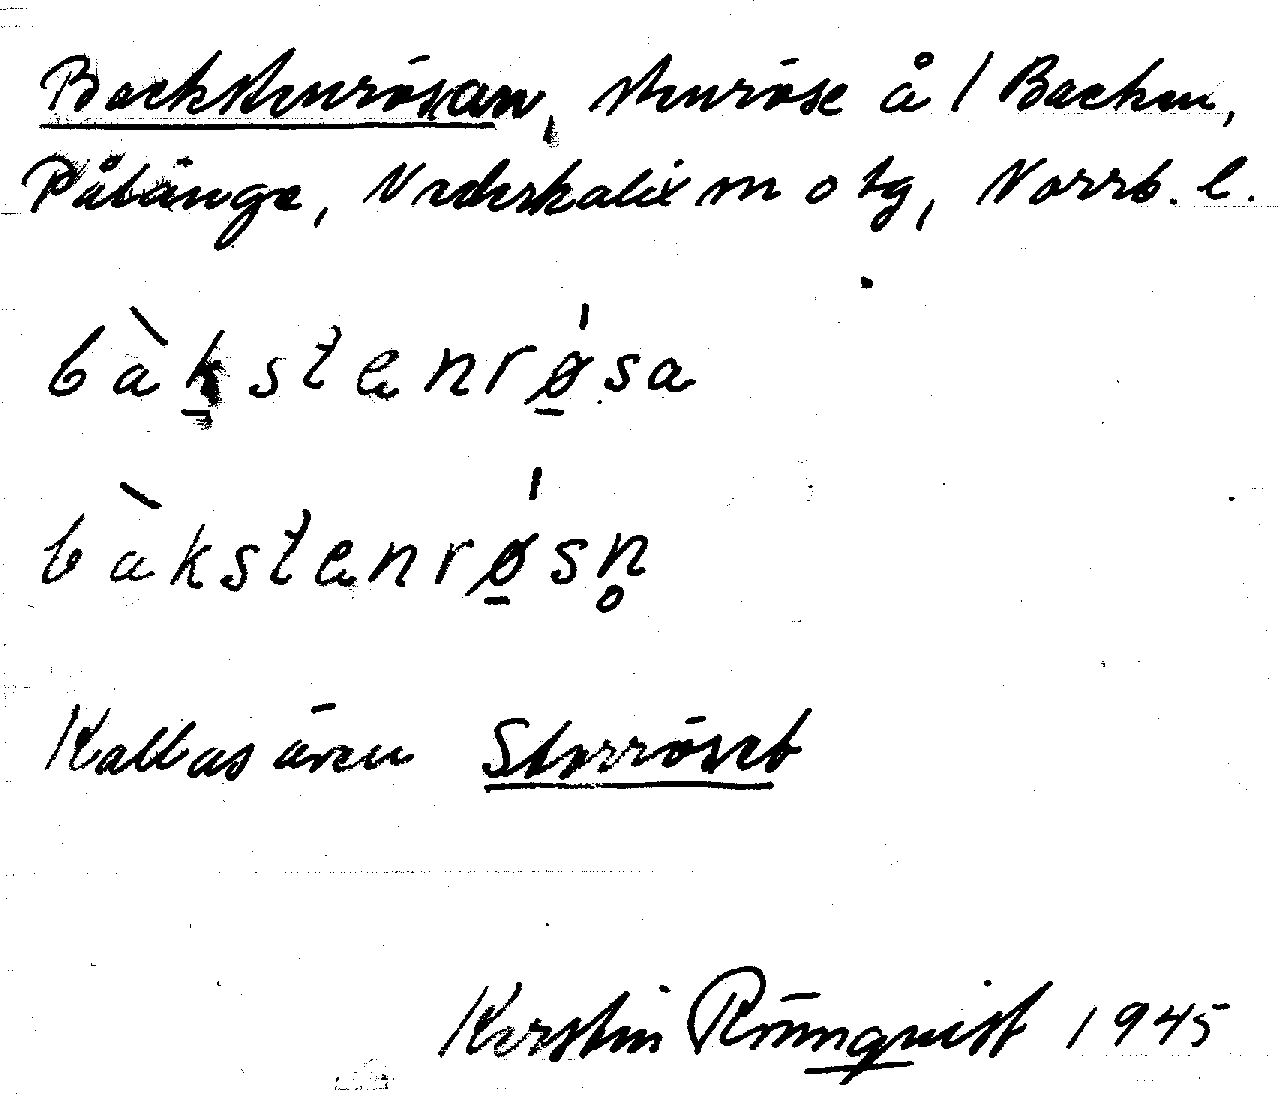 Backstenrösan, stenröse å / Backen,
Pålänge, Nederkalix m o tg, Norrb. l.
bàk̠stenrǿ̠sa
bàkstenrǿ̠sn̥
Kallas även Storröset
Kerstin Rönnqvist 1945